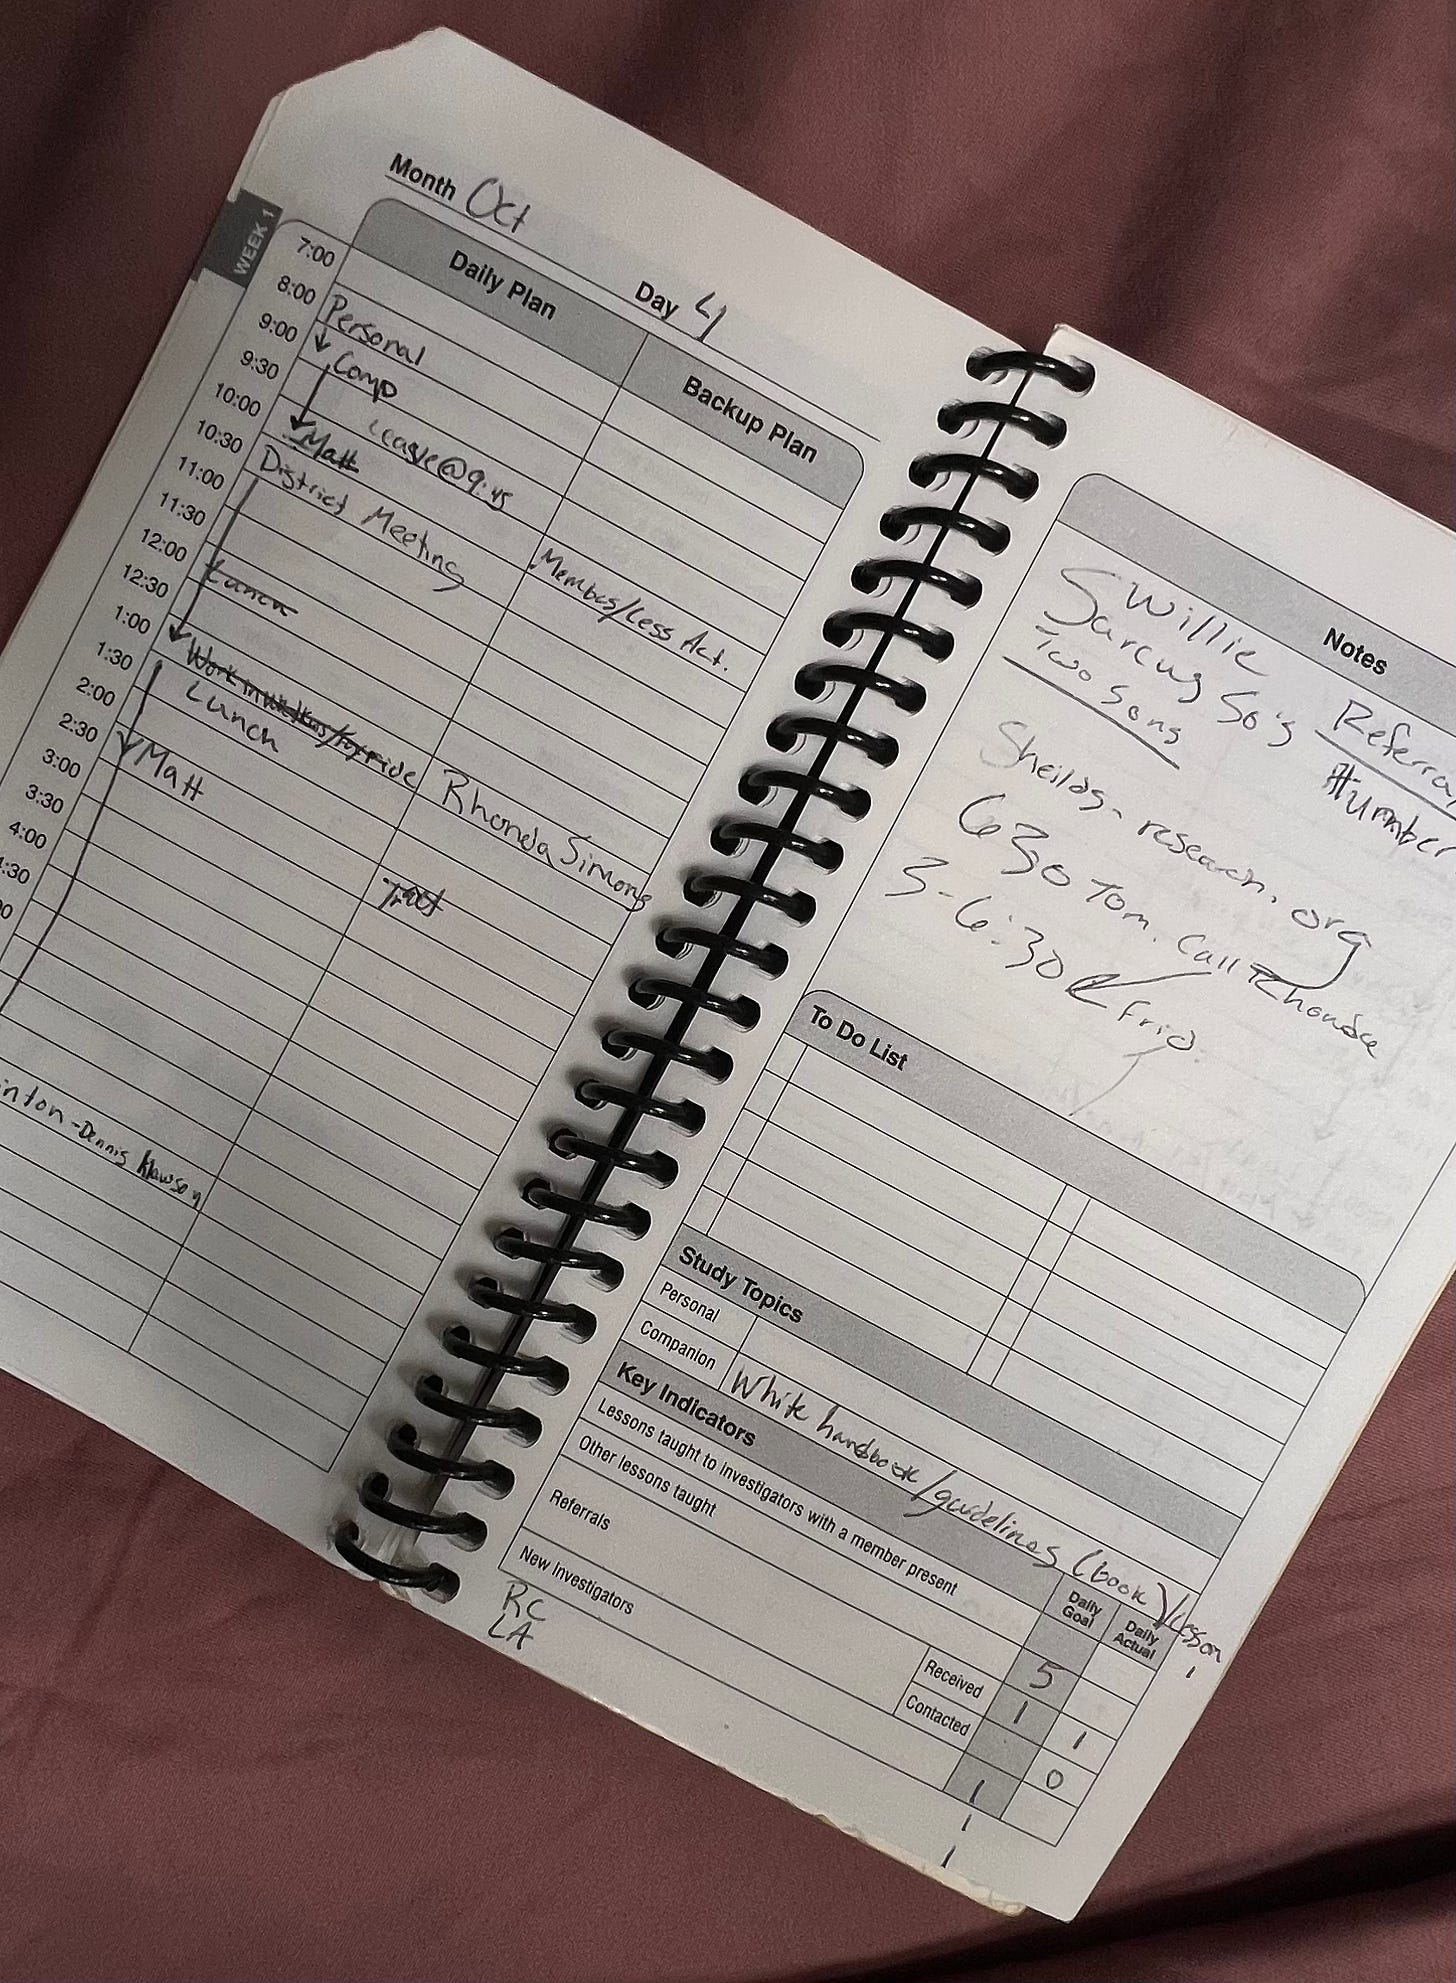 WEEK 1
Month Oct
Day 4
Daily Plan
Backup Plan
7:00
8:00 Personal
9:00 Comp
9:30 League@9:45
10:00 Matt
10:30 District Meeting
11:00
11:30 Members/Less Act.
12:00
12:30 Lunch
1:00
1:30 Work in
2:00 Lunch
2:30 Matt
3:00 Rhonda Simons
3:30
4:00
:30
inton - Dennis
Notes
Willie
50's
Two Sons
Referra
#umber
research.org
630 Tom. Call
3-6:30
To Do List
Study Topics
Personal
Companion White handbook/guidelines (book)/Lesson
Key Indicators
Daily Goal
Daily Actual
Lessons taught to investigators with a member present
Other lessons taught 5 1
Referrals
Received 1 1
Contacted 0
New Investigators 1
RC 1
LA 1